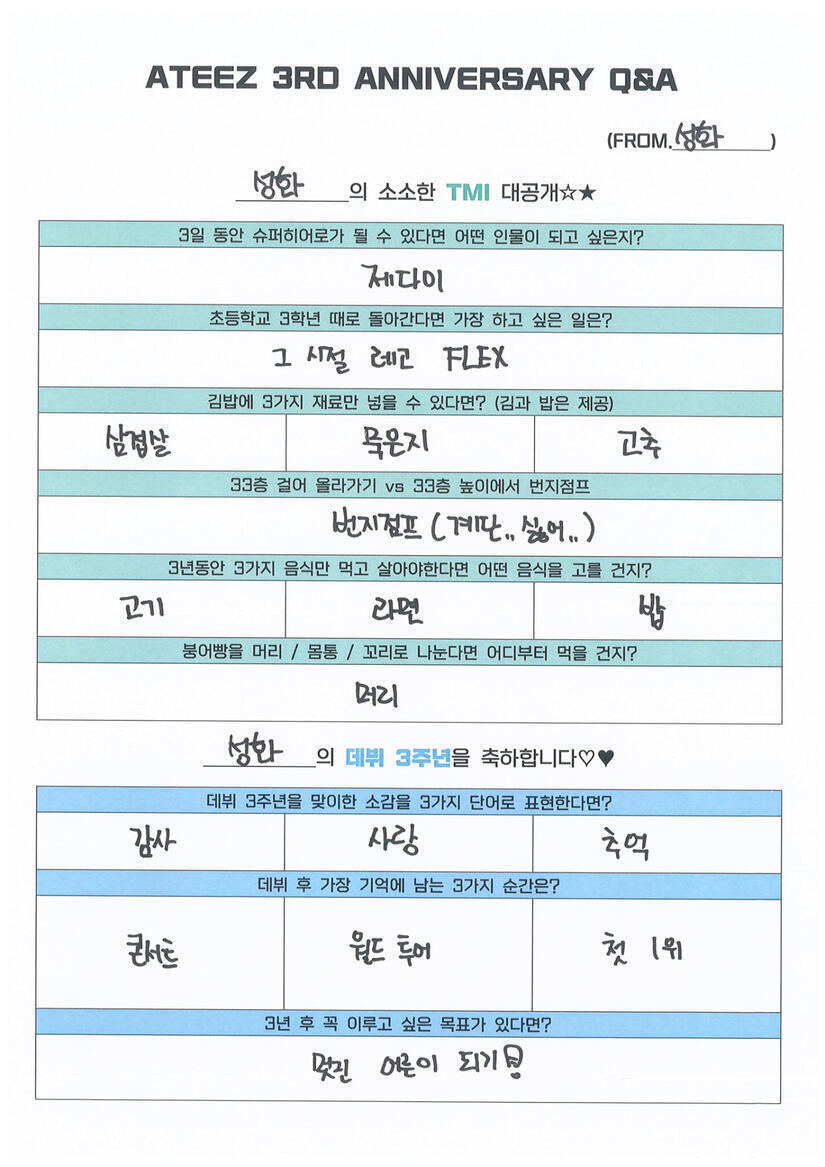 ATEEZ 3RD ANNIVERSARY Q&A
(FROM.성화)
성화의 소소한 TMI 대공개☆★
3일 동안 슈퍼히어로가 될 수 있다면 어떤 인물이 되고 싶은지?
제다이
초등학교 3학년 때로 돌아간다면 가장 하고 싶은 일은?
그 시절 레고 FLEX
김밥에 3가지 재료만 넣을 수 있다면? (김과 밥은 제공)
삼겹살 묵은지 고추
33층 걸어 올라가기 vs 33층 높이에서 번지점프
번지점프 (계단.. 싫어..)
3년동안 3가지 음식만 먹고 살아야한다면 어떤 음식을 고를 건지?
고기 라면 밥
붕어빵을 머리 / 몸통 / 꼬리로 나눈다면 어디부터 먹을 건지?
머리
성화의 데뷔 3주년을 축하합니다♡♥
데뷔 3주년을 맞이한 소감을 3가지 단어로 표현한다면?
감사 사랑 추억
데뷔 후 가장 기억에 남는 3가지 순간은?
콘서트 월드 투어 첫 1위
3년 후 꼭 이루고 싶은 목표가 있다면?
멋진 어른이 되기!